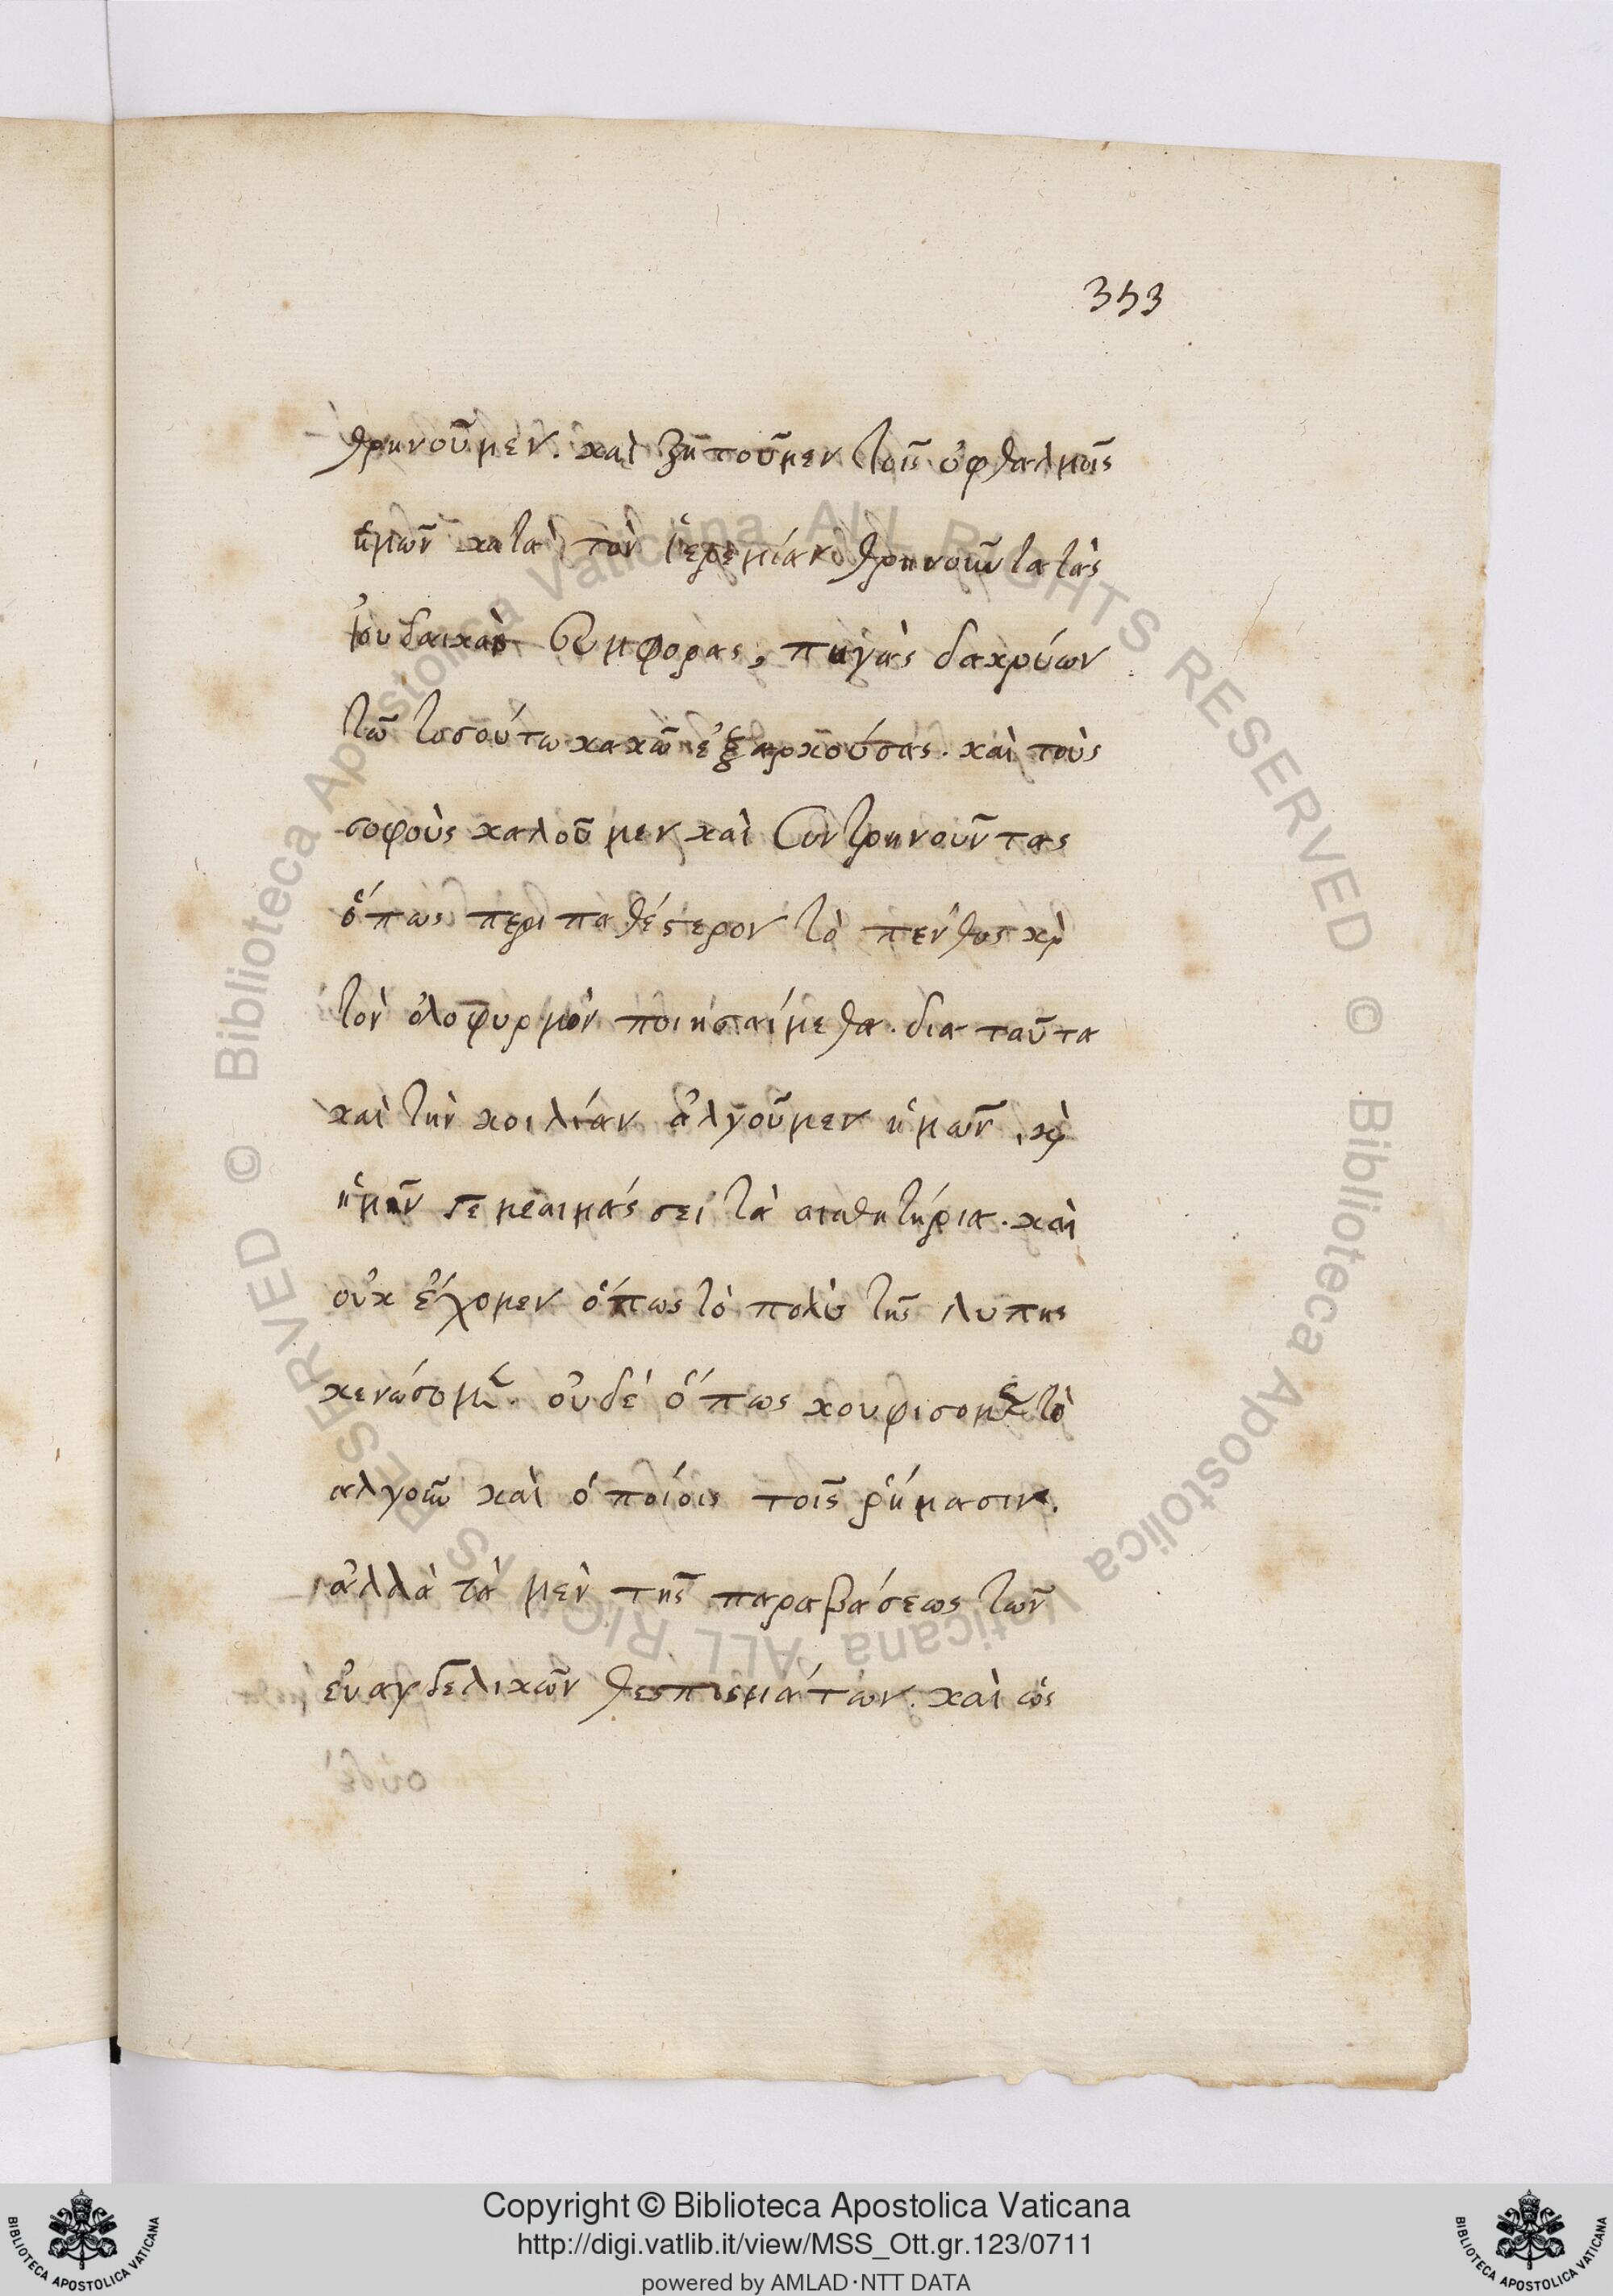 353
θρηνοῦμεν. καὶ ζητοῦμεν τοῖς ὀφθαλμοῖς
ἡμῶν κατὰ τὸν Ἱερεμίαν θρηνοῦντα τὰς
Ἰουδαικὰς συμφορας, πηγὰς δακρύων
τῶ τοσούτω κακῶ ἐξαρκούσας. καὶ τοὺς
σοφοὺς καλοῦμεν καὶ συνθρηνοῦντας
ὅπως περιπαθέστερον τὸ πένθος κὶ
τὸν ὀλοφυρμὸν ποιησαίμεθα. δια ταῦτα
καὶ τὴν κοιλίαν ἀλγοῦμεν ἡμῶν, κὶ
ἡμῶν τὰ αισθητήρια. καὶ
οὐκ ἔχομεν ὅπως τὸ πολὺ τῆς λυπης
κενώσομεν. οὐδὲ ὅπως κουφισομεν τὸ
αλγοῦν καὶ ὁποίοις τοῖς ῥήμασιν.
ἀλλὰ τὰ μὲν τῆς παραβάσεως τῶν
εὐαγγελικῶν θεσπισμάτων. καὶ ὡς
Copyright © Biblioteca Apostolica Vaticana
http://digi.vatlib.it/view/MSS_Ott.gr.123/0711
powered by AMLAD·NTT DATA
BIBLIOTECA APOSTOLICA VATICANA
BIBLIOTECA APOSTOLICA VATICANA
© Biblioteca Apostolica Vaticana ALL RIGHTS RESERVED
© Biblioteca Apostolica Vaticana ALL RIGHTS RESERVED